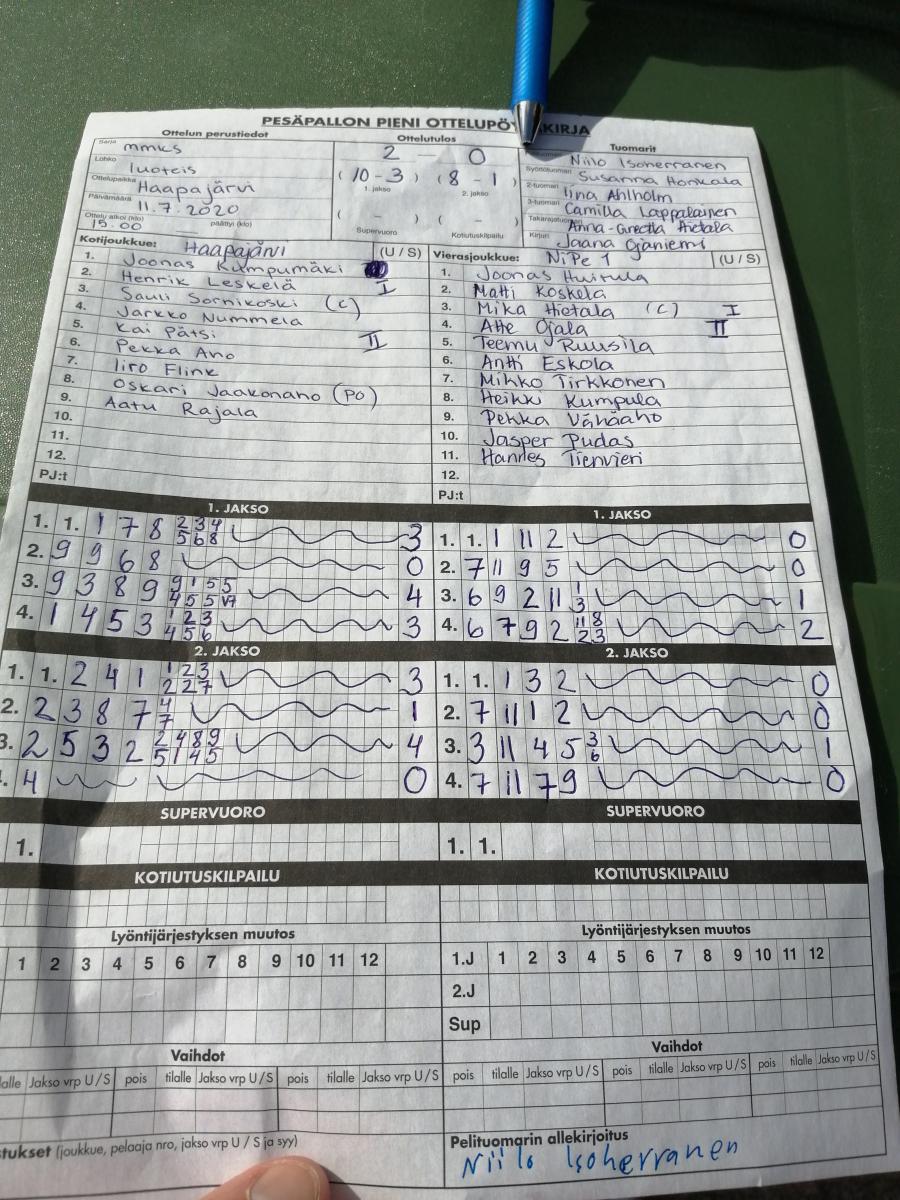 PESÄPALLON PIENI OTTELUPÖ KIRJA
Ottelun perustiedot Ottelutulos Tuomarit
Sarja mmks 2 – 0 Niilo Isoherranen
Lohko luoteis (10-3) (8-1) Syöttötuomari Susanna Honkala
1. jakso 2. jakso
Ottelupaikka Haapajärvi 2-tuomari Iina Ahlholm
Päivämäärä 11.7.2020 3-tuomari Camilla Lappalainen
Ottelu alkoi (klo) 15.00 päättyi (klo) ( - ) ( - ) Takarajatuomari Anna-Greetta Hietala
Supervuoro Kotiutuskilpailu Kirjuri Jaana Ojaniemi
Kotijoukkue: Haapajärvi (U / S) Vierasjoukkue: NiPe 1 (U / S)
1. Joonas Kumpumäki 1. Joonas Huitula
2. Henrik Leskelä I 2. Matti Koskela
3. Sauli Sornikoski (C) 3. Mika Hietala (C) I
4. Jarkko Nummela 4. Atte Ojala II
5. Kai Pätsi II 5. Teemu Ruusila
6. Pekka Aho 6. Antti Eskola
7. Iiro Flink 7. Mihko Tirkkonen
8. Oskari Jaakonaho (PO) 8. Heikki Kumpula
9. Aatu Rajala 9. Pekka Vähäaho
10. 10. Jasper Pudas
11. 11. Hannes Tienvieri
12. 12.
PJ:t PJ:t
1. JAKSO 1. JAKSO
1. 1. 1 7 8 2 3 4 5 6 8 3 1. 1. 1 11 2 0
2. 9 9 6 8 0 2. 7 11 9 5 0
3. 9 3 8 9 9 1 5 5 4 5 5 4 3. 6 9 2 11 1 3 1
4. 1 4 5 3 1 2 3 4 5 6 3 4. 6 7 9 2 11 8 2 3 2
2. JAKSO 2. JAKSO
1. 1. 2 4 1 1 2 3 2 2 7 3 1. 1. 1 3 2 0
2. 2 3 8 7 4 7 1 2. 7 11 1 2 0
3. 2 5 3 2 2 4 8 9 5 1 4 5 4 3. 3 11 4 5 3 6 1
. 4 0 4. 7 11 7 9 0
SUPERVUORO SUPERVUORO
1. 1. 1.
KOTIUTUSKILPAILU KOTIUTUSKILPAILU
Lyöntijärjestyksen muutos Lyöntijärjestyksen muutos
1 2 3 4 5 6 7 8 9 10 11 12 1.J 1 2 3 4 5 6 7 8 9 10 11 12
2.J
Sup
Vaihdot Vaihdot
alle Jakso vrp U / S pois tilalle Jakso vrp U / S pois tilalle Jakso vrp U / S pois tilalle Jakso vrp U / S pois tilalle Jakso vrp U / S pois tilalle Jakso vrp U / S
tukset (joukkue, pelaaja nro, jakso vrp U / S ja syy) Pelituomarin allekirjoitus
Niilo Isoherranen